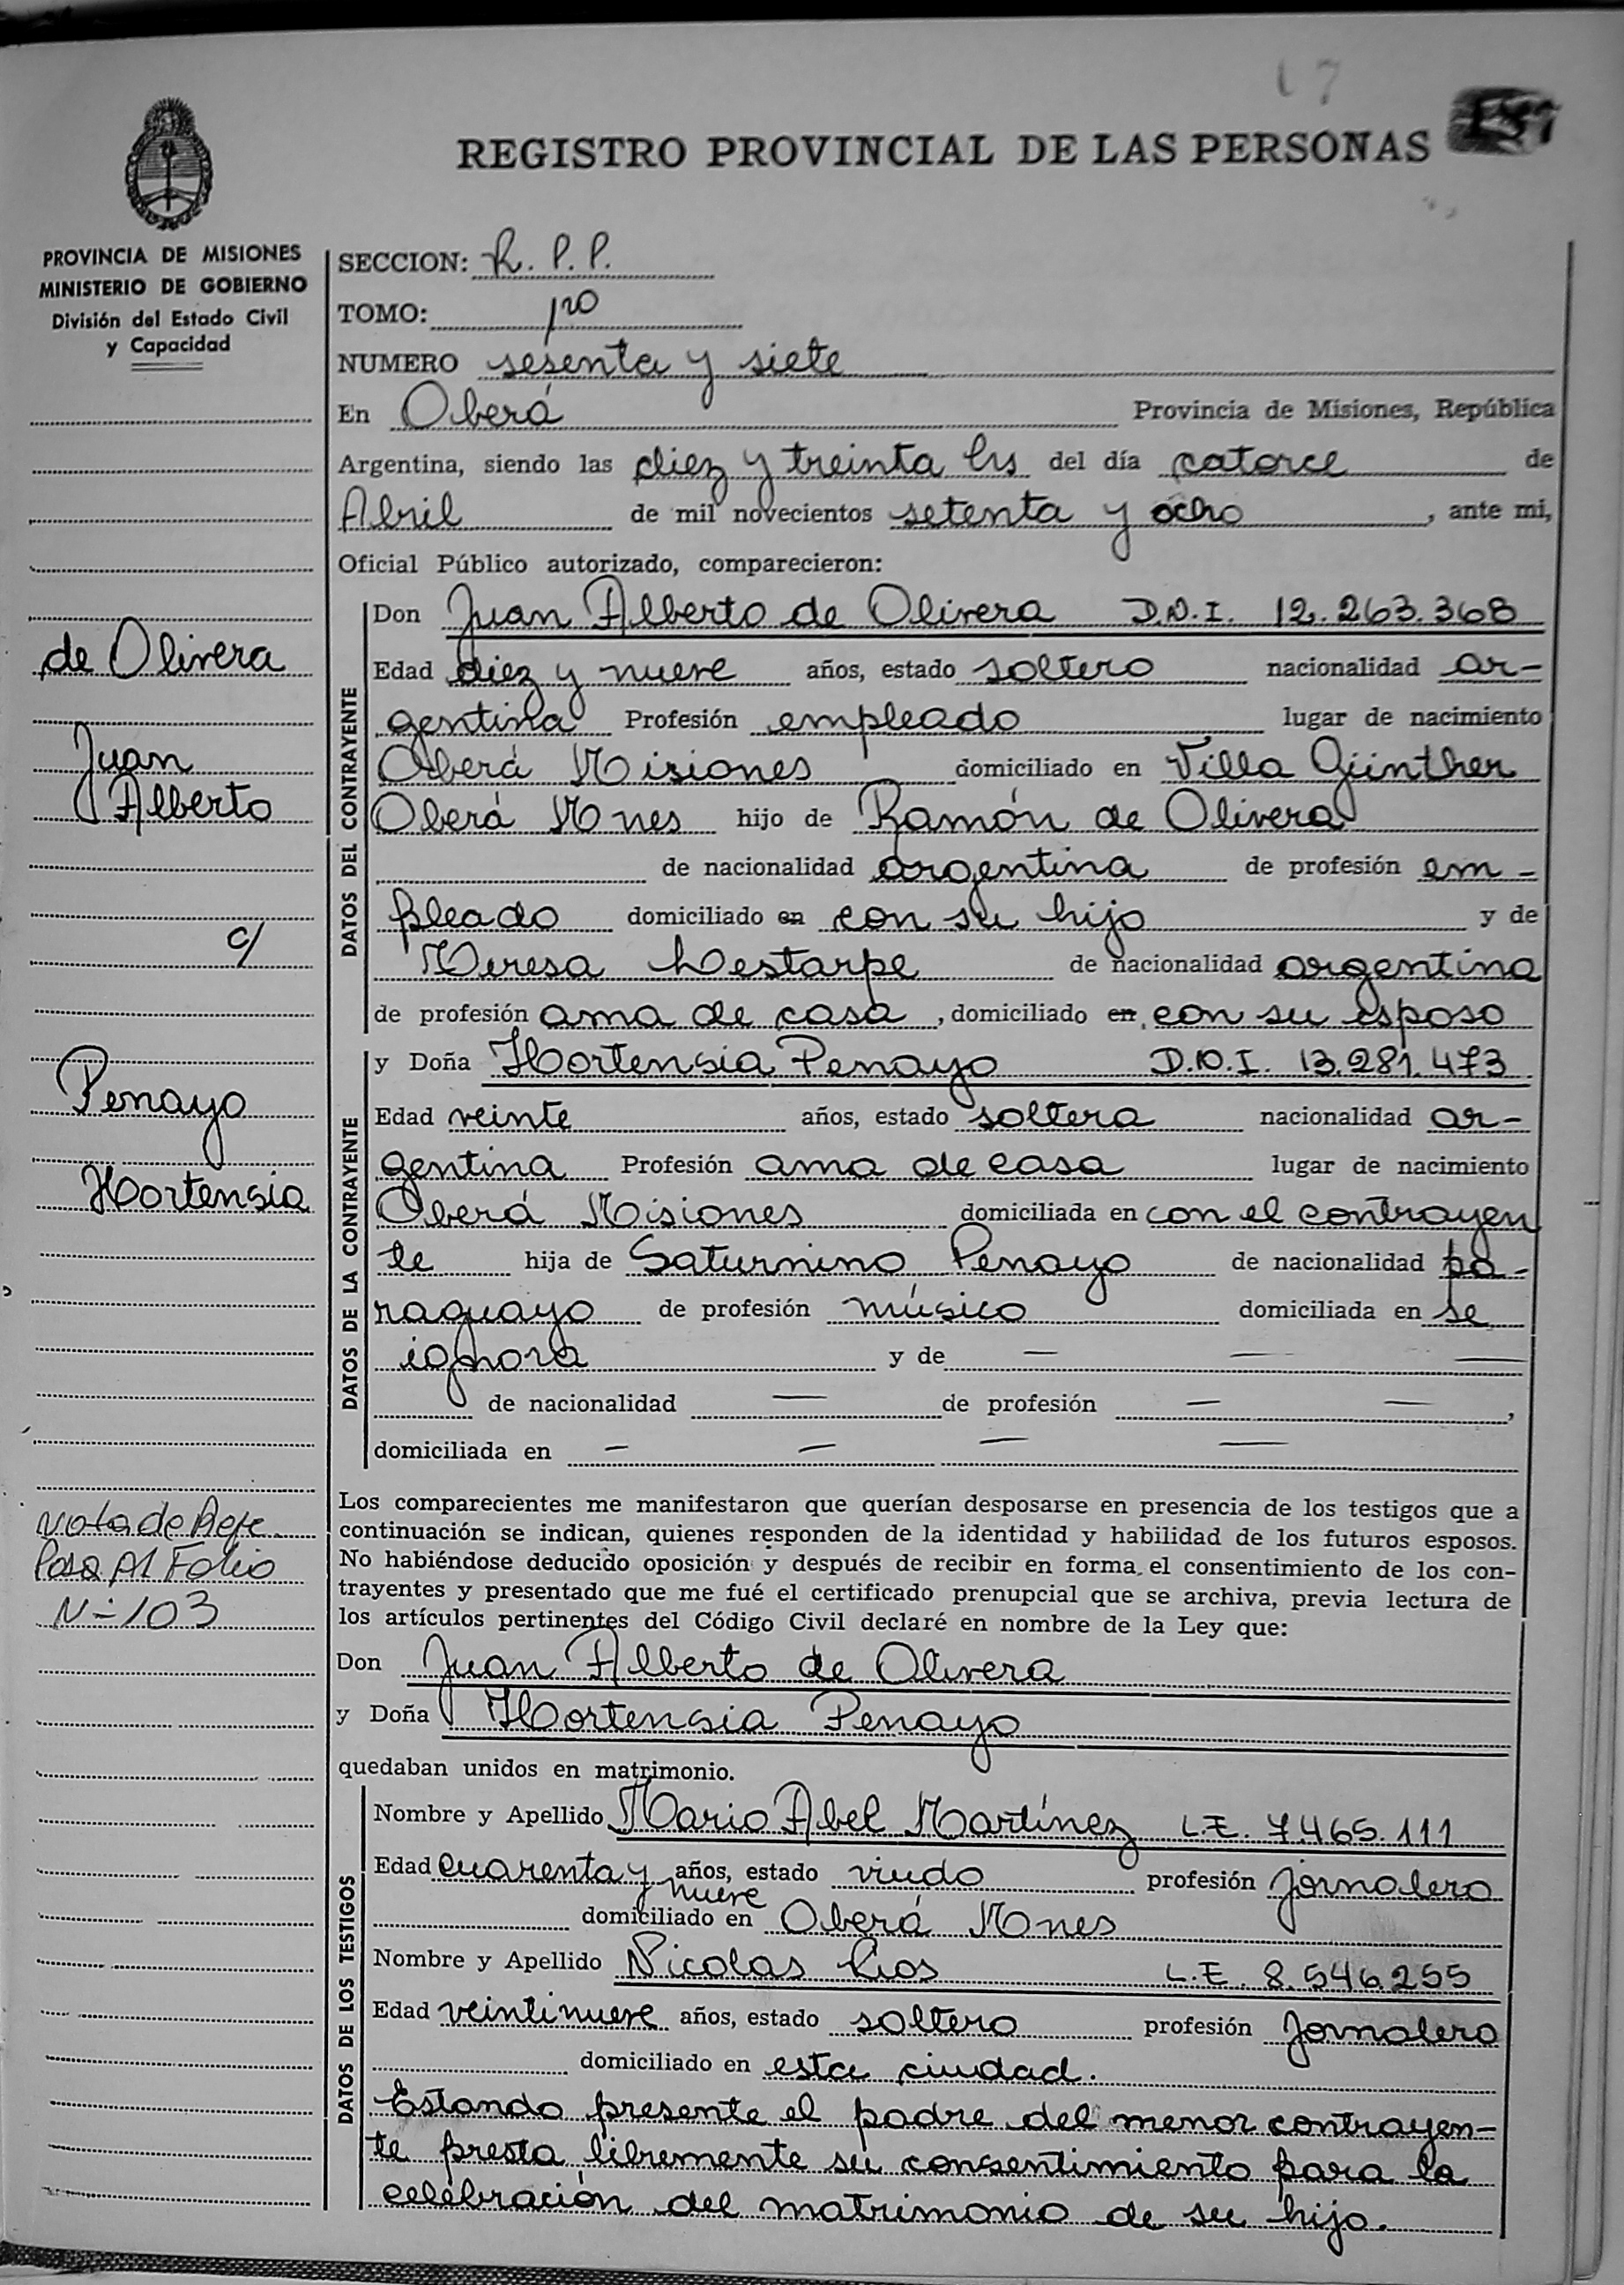 17
REGISTRO PROVINCIAL DE LAS PERSONAS
PROVINCIA DE MISIONES
MINISTERIO DE GOBIERNO
División del Estado Civil
y Capacidad
SECCION: R. P. P.
TOMO: 1ro
NUMERO sesenta y siete
En Oberá Provincia de Misiones, República
Argentina, siendo las diez y treinta hs del día catorce de
Abril de mil novecientos setenta y ocho, ante mi,
Oficial Público autorizado, comparecieron:
de Olivera
Juan
Alberto
c/
Penayo
Hortensia
DATOS DEL CONTRAYENTE
Don Juan Alberto de Olivera D.N.I. 12.263.368
Edad diez y nueve años, estado soltero nacionalidad ar-
gentina Profesión empleado lugar de nacimiento
Oberá Misiones domiciliado en Villa Günther
Oberá Mnes hijo de Ramón de Olivera
de nacionalidad argentina de profesión em-
pleado domiciliado en con su hijo y de
de nacionalidad argentina
de profesión ama de casa, domiciliado en con su esposo
DATOS DE LA CONTRAYENTE
y Doña Hortensia Penayo D.N.I. 13.281.473
Edad veinte años, estado soltera nacionalidad ar-
gentina Profesión ama de casa lugar de nacimiento
Oberá Misiones domiciliada en con el contrayen
te hija de Saturnino Penayo de nacionalidad pa-
raguayo de profesión músico domiciliada en se
ignora y de — — —
de nacionalidad — de profesión — —,
domiciliada en — — — —
Los comparecientes me manifestaron que querían desposarse en presencia de los testigos que a
continuación se indican, quienes responden de la identidad y habilidad de los futuros esposos.
No habiéndose deducido oposición y después de recibir en forma el consentimiento de los con-
trayentes y presentado que me fué el certificado prenupcial que se archiva, previa lectura de
los artículos pertinentes del Código Civil declaré en nombre de la Ley que:
Nota de Refe.
Pasa Al Folio
N-103
Don Juan Alberto de Olivera
y Doña Hortensia Penayo
quedaban unidos en matrimonio.
DATOS DE LOS TESTIGOS
Nombre y Apellido Mario Abel Martínez L.E. 7.465.111
Edad cuarenta y nueve años, estado viudo profesión Jornalero
domiciliado en Oberá Mnes
Nombre y Apellido Nicolas Rios L.E. 8.546.255
Edad veintinueve años, estado soltero profesión Jornalero
domiciliado en esta ciudad.
Estando presente el padre del menor contrayen-
te presta libremente su consentimiento para la
celebración del matrimonio de su hijo.